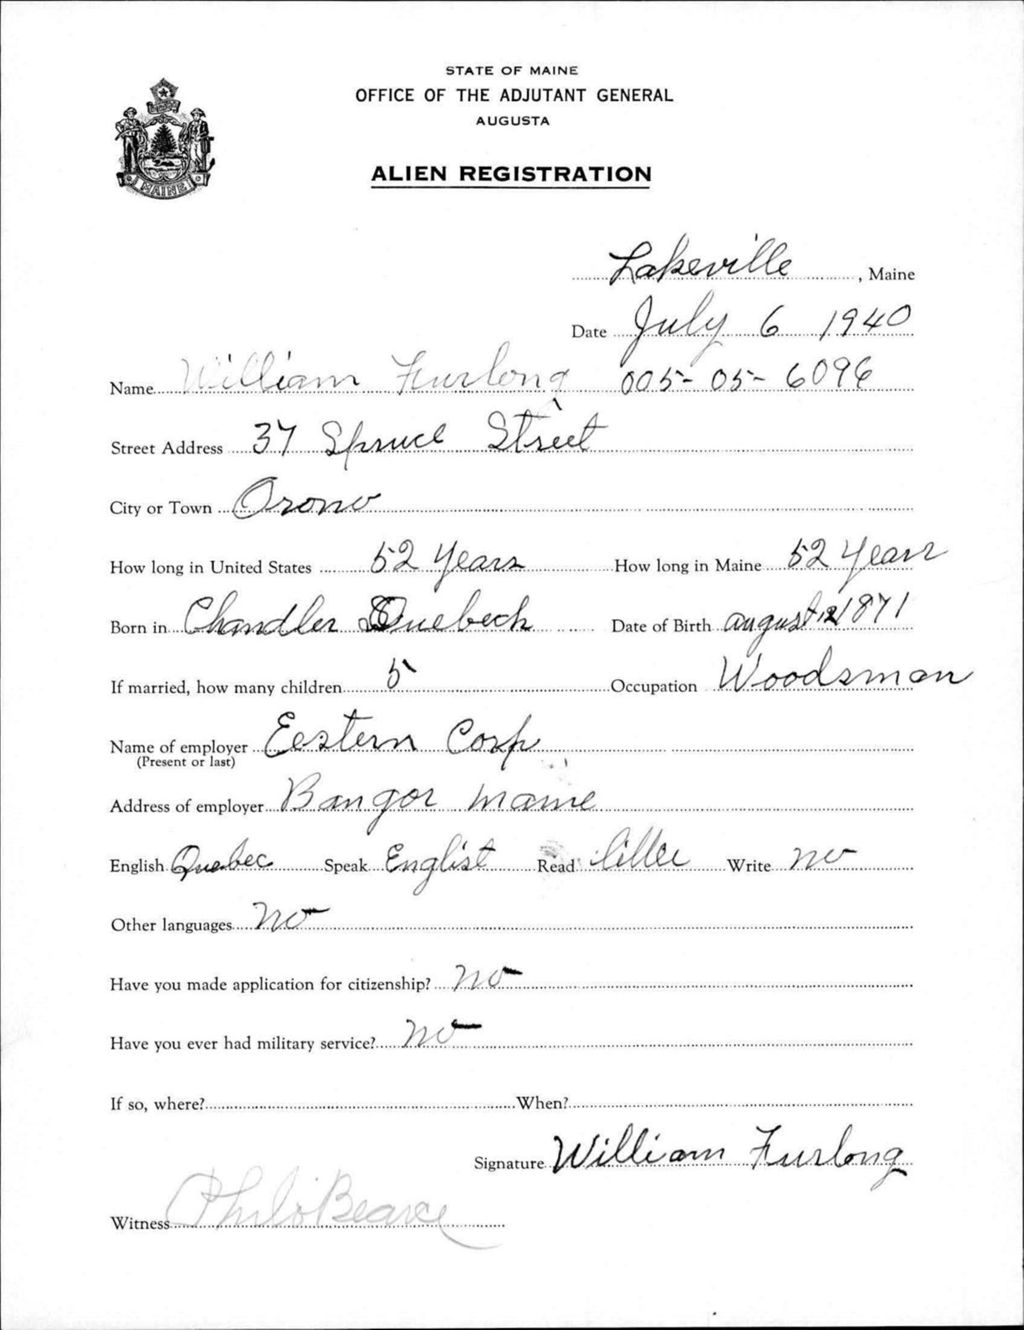 STATE OF MAINE
OFFICE OF THE ADJUTANT GENERAL
AUGUSTA
ALIEN REGISTRATION
MAINE
Lakeville, Maine
Date July 6 1940
Name William Furlong 005-05-6096
Street Address 37 Spruce Street
City or Town Orono
How long in United States 52 years How long in Maine 52 years
Born in Chandler Quebeck Date of Birth august 12 1871
If married, how many children 5 Occupation Woodsman
Name of employer Eestern Corp
(Present or last)
Address of employer Bangor Maine
English Quebec Speak Englist Read little Write no
Other languages no
Have you made application for citizenship? no
Have you ever had military service? no
If so, where? When?
Signature William Furlong
Witness Philo Bearce